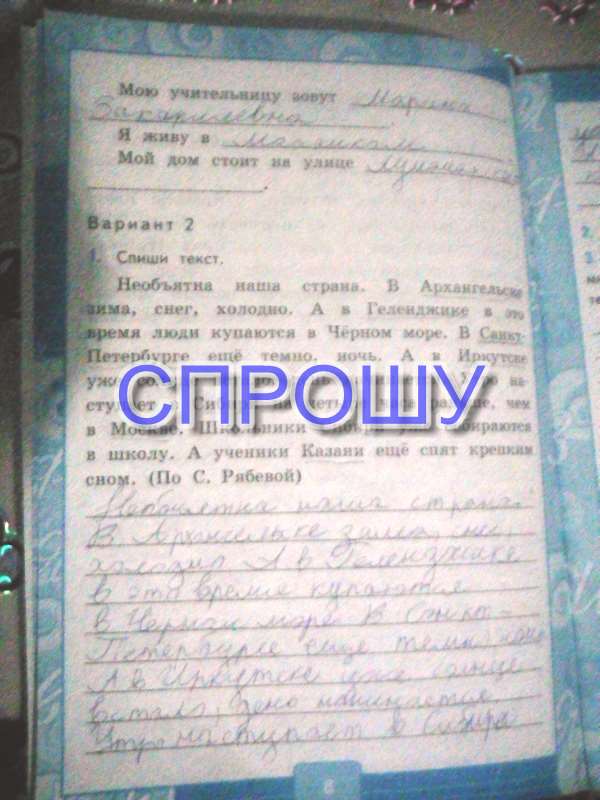 Мою учительницу зовут Марина
Закарилевна
Я живу в
Мой дом стоит на улице
Вариант 2
1. Спиши текст.
Необъятна наша страна. В Архангельске
зима, снег, холодно. А в Геленджике в это
время люди купаются в Чёрном море. В Санкт-
Петербурге ещё темно, ночь. А в Иркутске
уже
СПРОШУ
на-
ступает чем
в Москве. Школьники
в школу. А ученики Казани ещё спят крепким
сном. (По С. Рябевой)
Необъятна наша страна.
В Архангельске зима,
холодно А в Геленджике
в это время купаются
в Черном море В Санкт-
Петербурге еще темно
А в Иркутске уже солнце
встало, день начинается
Утро наступает в Сибири
6
2.
3.